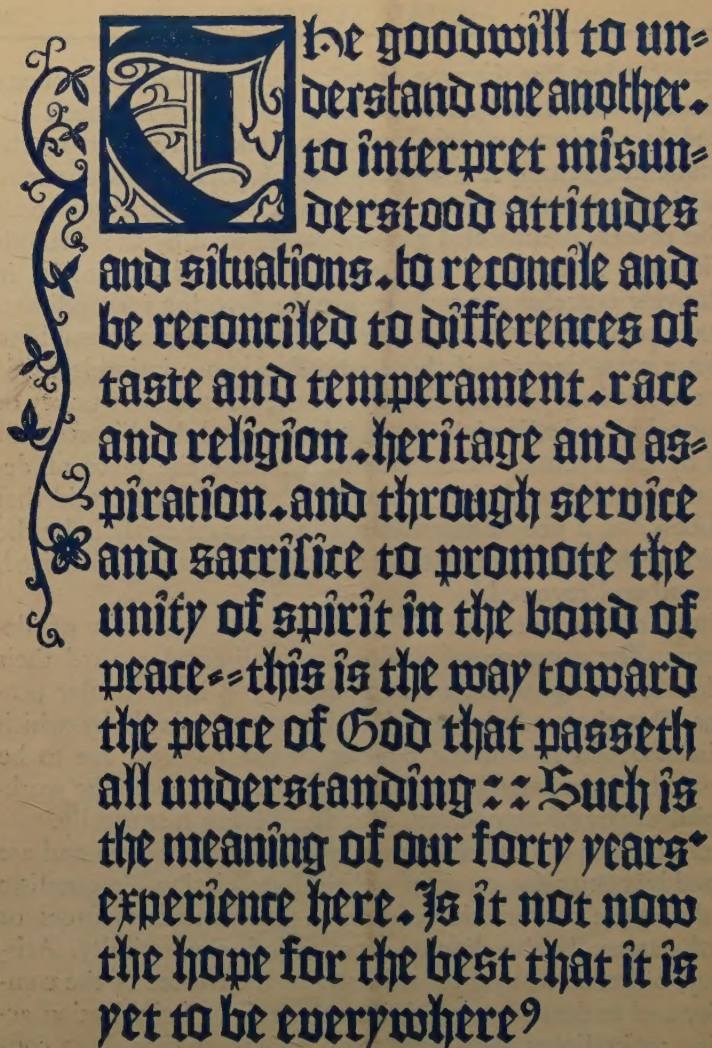 The goodwill to un=
derstand one another.
to interpret misun=
derstood attitudes
and situations. to reconcile and
be reconciled to differences of
taste and temperament. race
and religion. heritage and as=
piration. and through service
and sacrifice to promote the
unity of spirit in the bond of
peace==this is the way toward
the peace of God that passeth
all understanding :: Such is
the meaning of our forty years'
experience here. Is it not now
the hope for the best that it is
yet to be everywhere?